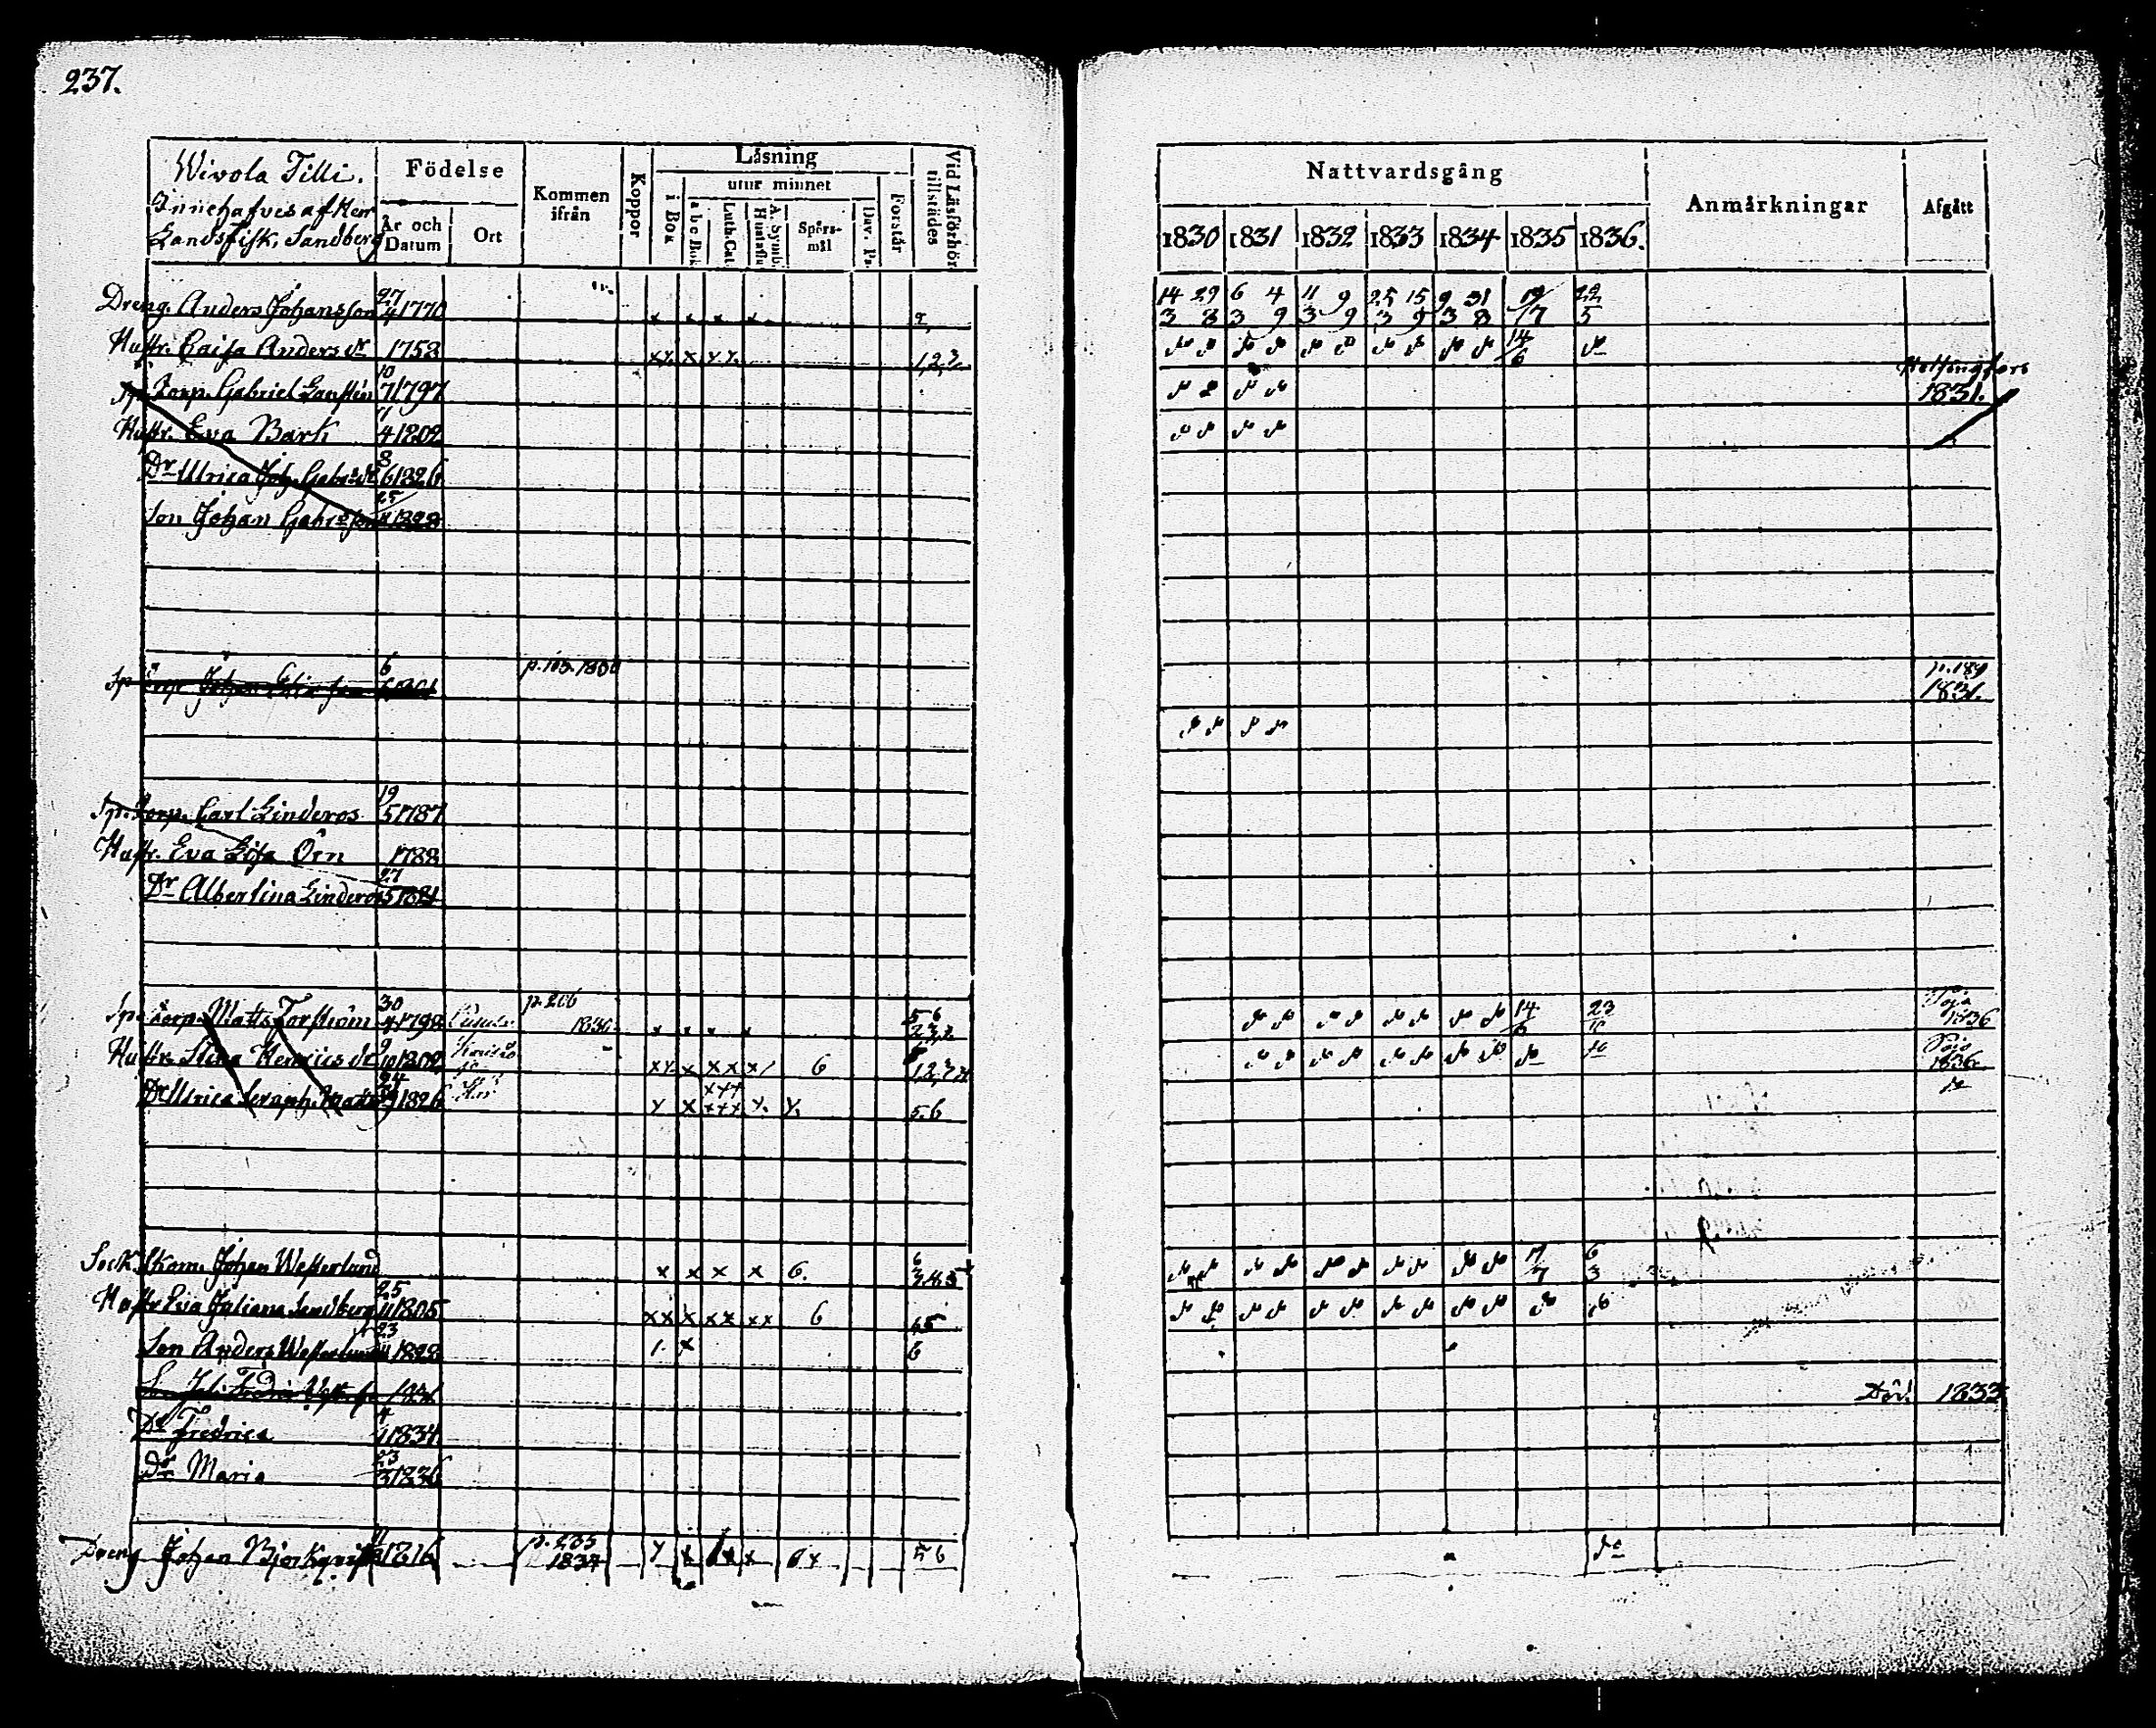 237.
Wivola Tilli.
Innehafves af Herr
Landsfisk. Sandberg
Födelse
År och Datum
Ort
Kommen ifrån
Koppor
Läsning
i Bok
utur minnet
a b c Bok
Luth. Cat.
A. Symb. Hustafla
Spörs-mål
Dav. Ps.
Förstår
Vid Läsförhör tillstädes
Nattvardsgång
1830 1831 1832 1833 1834 1835 1836.
Anmärkningar
Afgått
Dreng. Anders Johansson 27/4 1770 x x x x 2, 14/3 29/8 6/3 4/9 11/3 9/9 25/3 15/9 9/3 31/8 19/7 22/5
Hustr. Caisa Anders dr 1758 xx x xx 1,2,3, 14/6 do
Sp. Torp. Gabriel 10/7 1797 Helsingfors 1831.
Hustr. Eva Bark 4 1802
Dr Ulrica Joh. Gabr. dr 8/6 1826
Son Johan Gabrsson 25 1828
Sp Torp Johan 6 p. 103. 1830 p. 189 1831.
Sp. Torp. Carl Linderos 19/5 1787
Hustr. Eva Lisa Örn 1788
Dr Albertina Linderos 27/5 1821
Sp. Torp. Matts Torström 30 1798 p. 206 1830 x x x x 5 6 2,3, 14/6 23/10 Pojo 1836
Hustr. Stina Henrics dr 9/10 1802 xx x x x x/ 6 1,2,3, do do Pojo 1836
Dr Ulrica Seraph. Matts 24 1826 x x xxx x. x. 5.6 do
Sock. Skom. Johan Westerlund x x x x 6. 6 3,4,5 17/7 6/3
Hustr Eva Juliana Sandberg 25/11 1805 xx x xx xx 6 4,5
Son Anders Westerlund 23/11 1828 1. x 6
Död. 1833
Dr Fredrica 4/1 1834
Dr Maria 23/3 1836
Dreng Johan Björkqvist 11 1816 p. 235 1834 x x x x 6 x 5 6 do